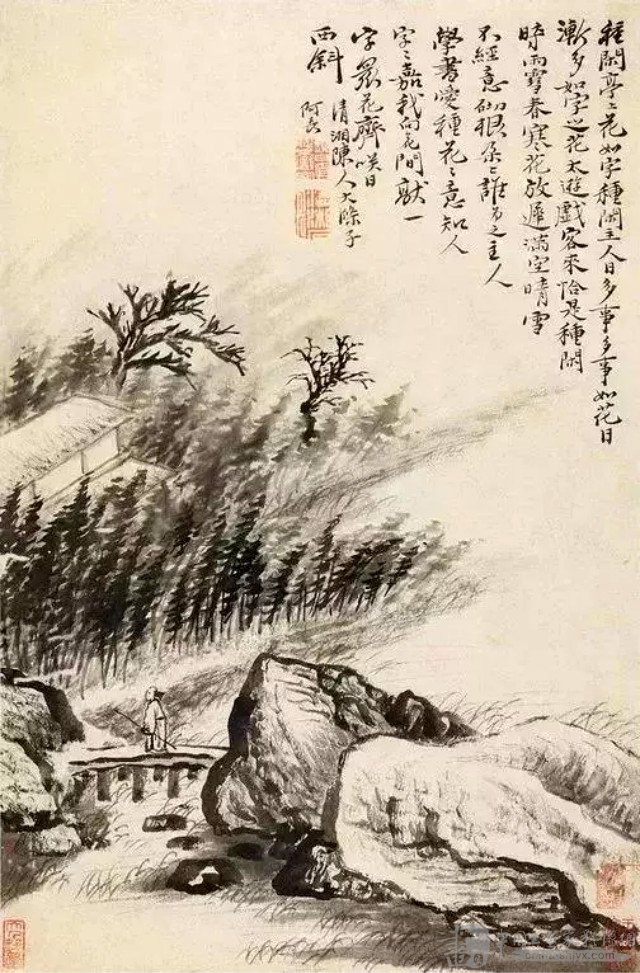 種閑亭上花如字種閑主人日多事多事如花日
漸多如字之花太遊戲客來恰是種閑
時雨雪春寒花放遲滿空晴雪
不經意砌根朵朵誰為之主人
學書愛種花花意知人
字字嘉我向花間獻一
字眾花齊咲日
西斜 清湘陳人大滌子
阿長